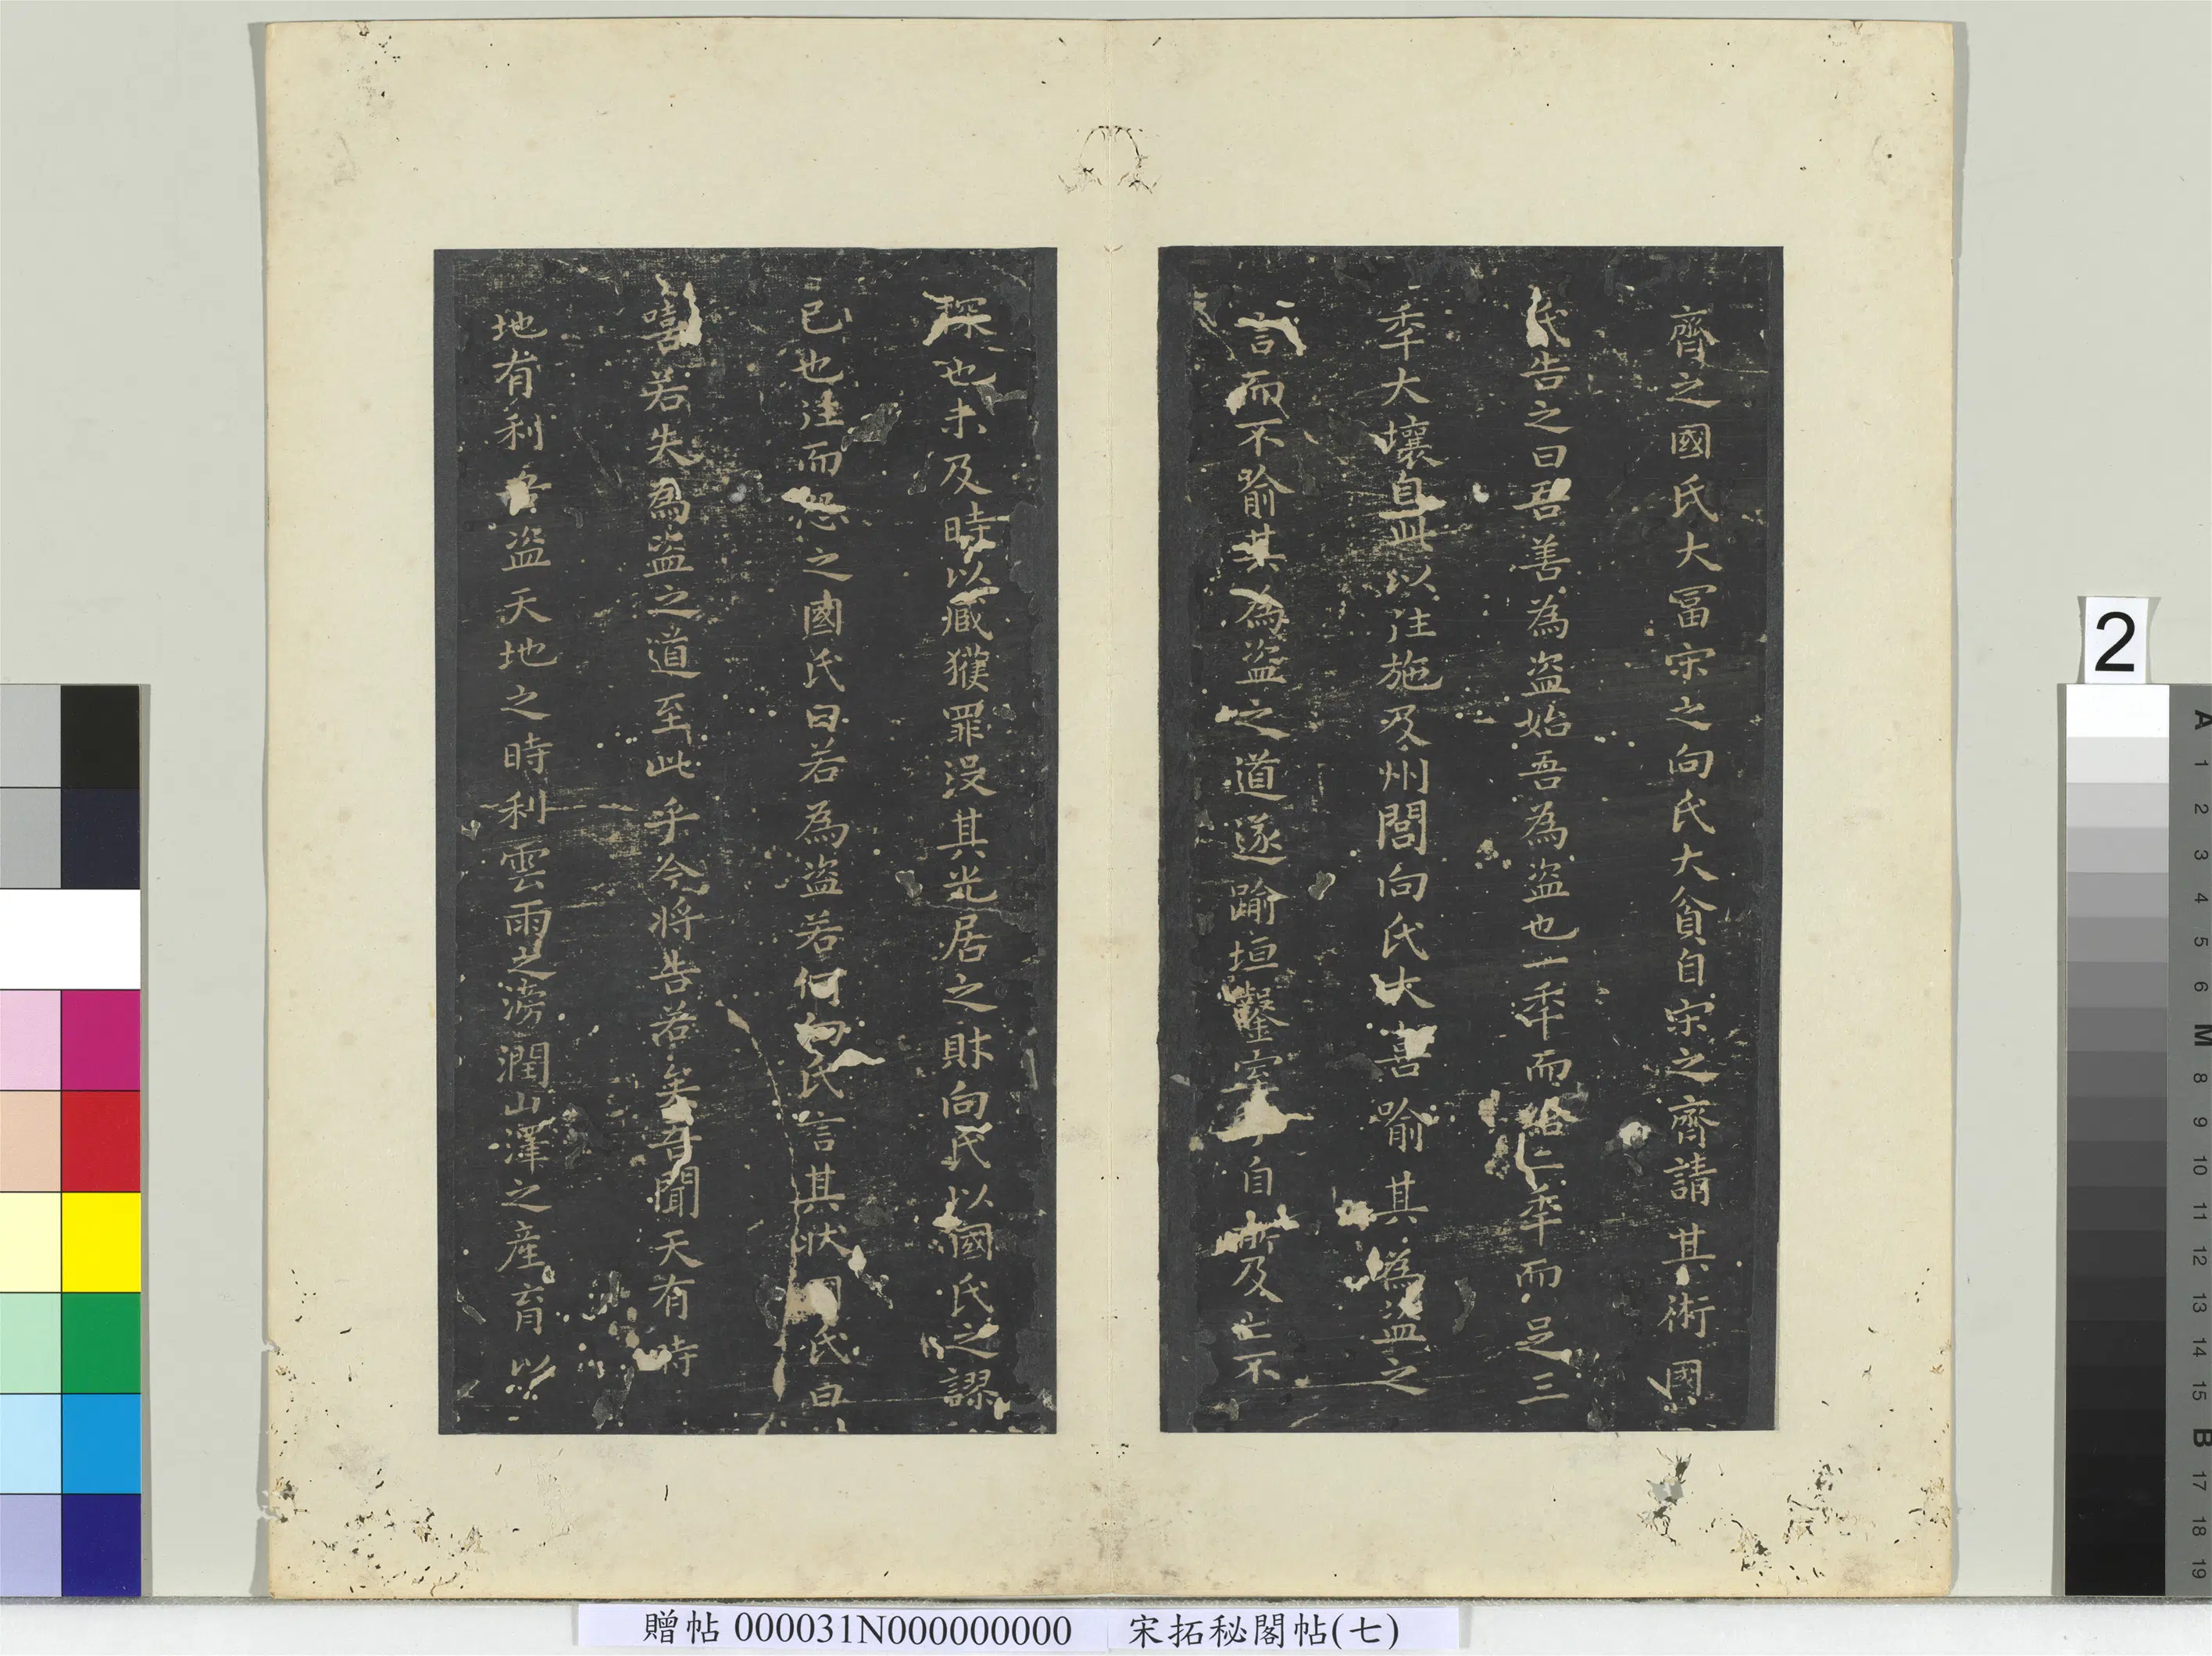 齊之國氏大冨宋之向氏大貧自宋之齊請其術國
氏告之曰吾善為盗始吾為盗也一秊而給二秊而足三
秊大壤自此以往施及州閭向氏大喜喻其為盗之
言而不喻其為盗之道遂踰垣鑿室手目所及亡不
探也未及時以臧獲罪沒其先居之財向氏以國氏之謬
已也往而怨之國氏曰若為盗若何向氏言其狀國氏曰
嘻若失為盗之道至此乎今將告若矣吾聞天有時
地有利吾盗天地之時利雲雨之滂潤山澤之産育以
2
A 1 2 3 4 5 6 M 8 9 10 11 12 13 14 15 B 17 18 19
贈帖 000031N000000000 宋拓秘閣帖(七)